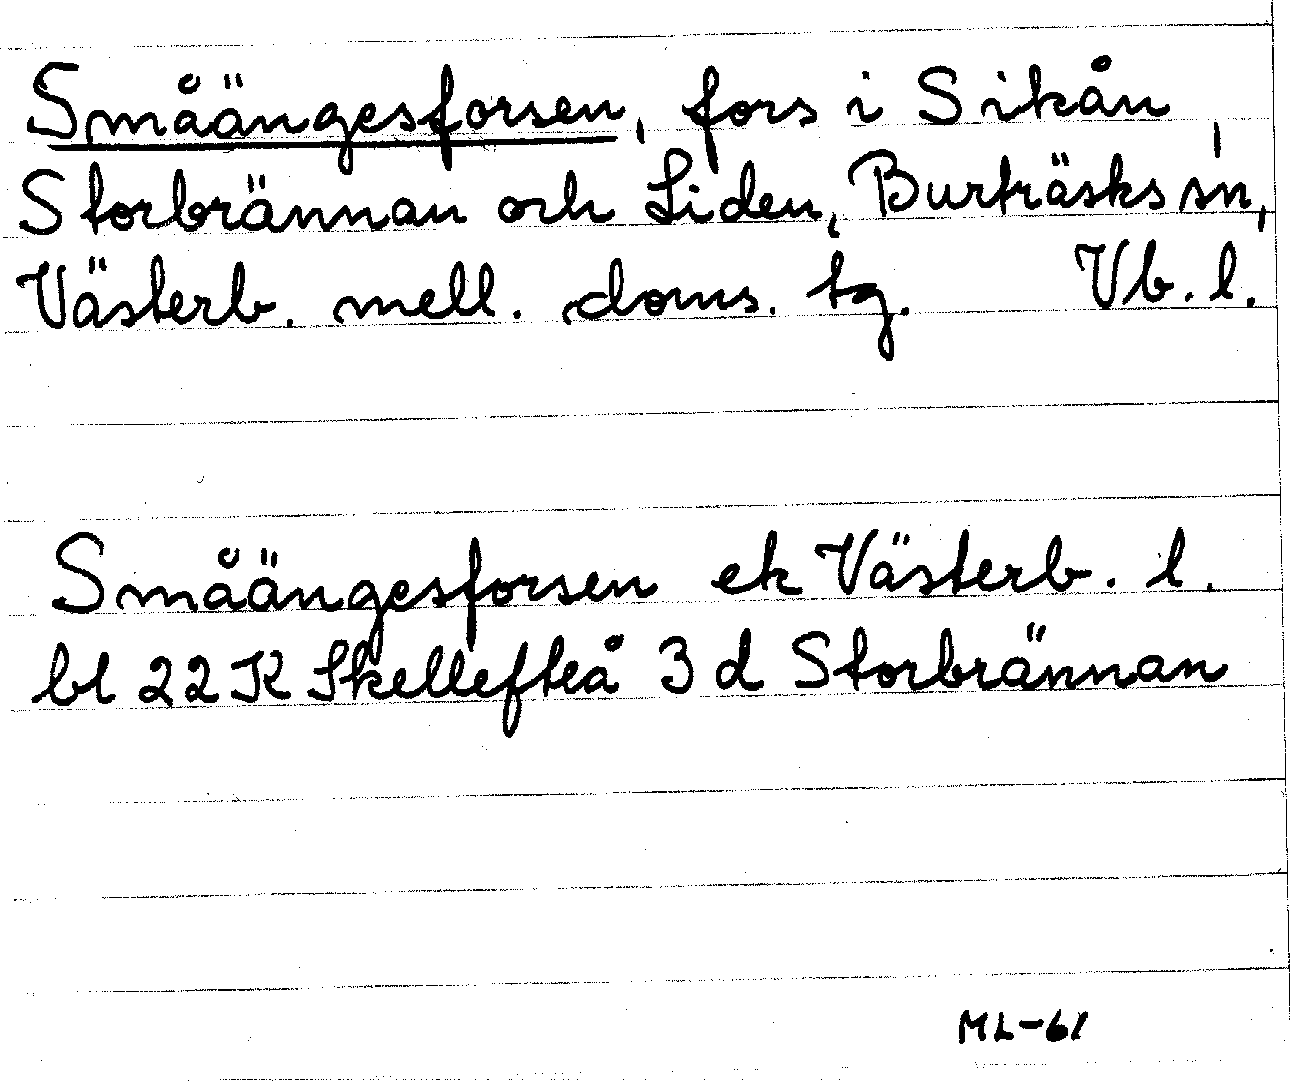 Småängesforsen, fors i Sikån,
Storbrännan och Liden, Burträsks sn,
Västerb. mell. doms. tg. Vb. l.
Småängesforsen ek Västerb. l.
bl 22K Skellefteå 3 d Storbrännan
ML-61